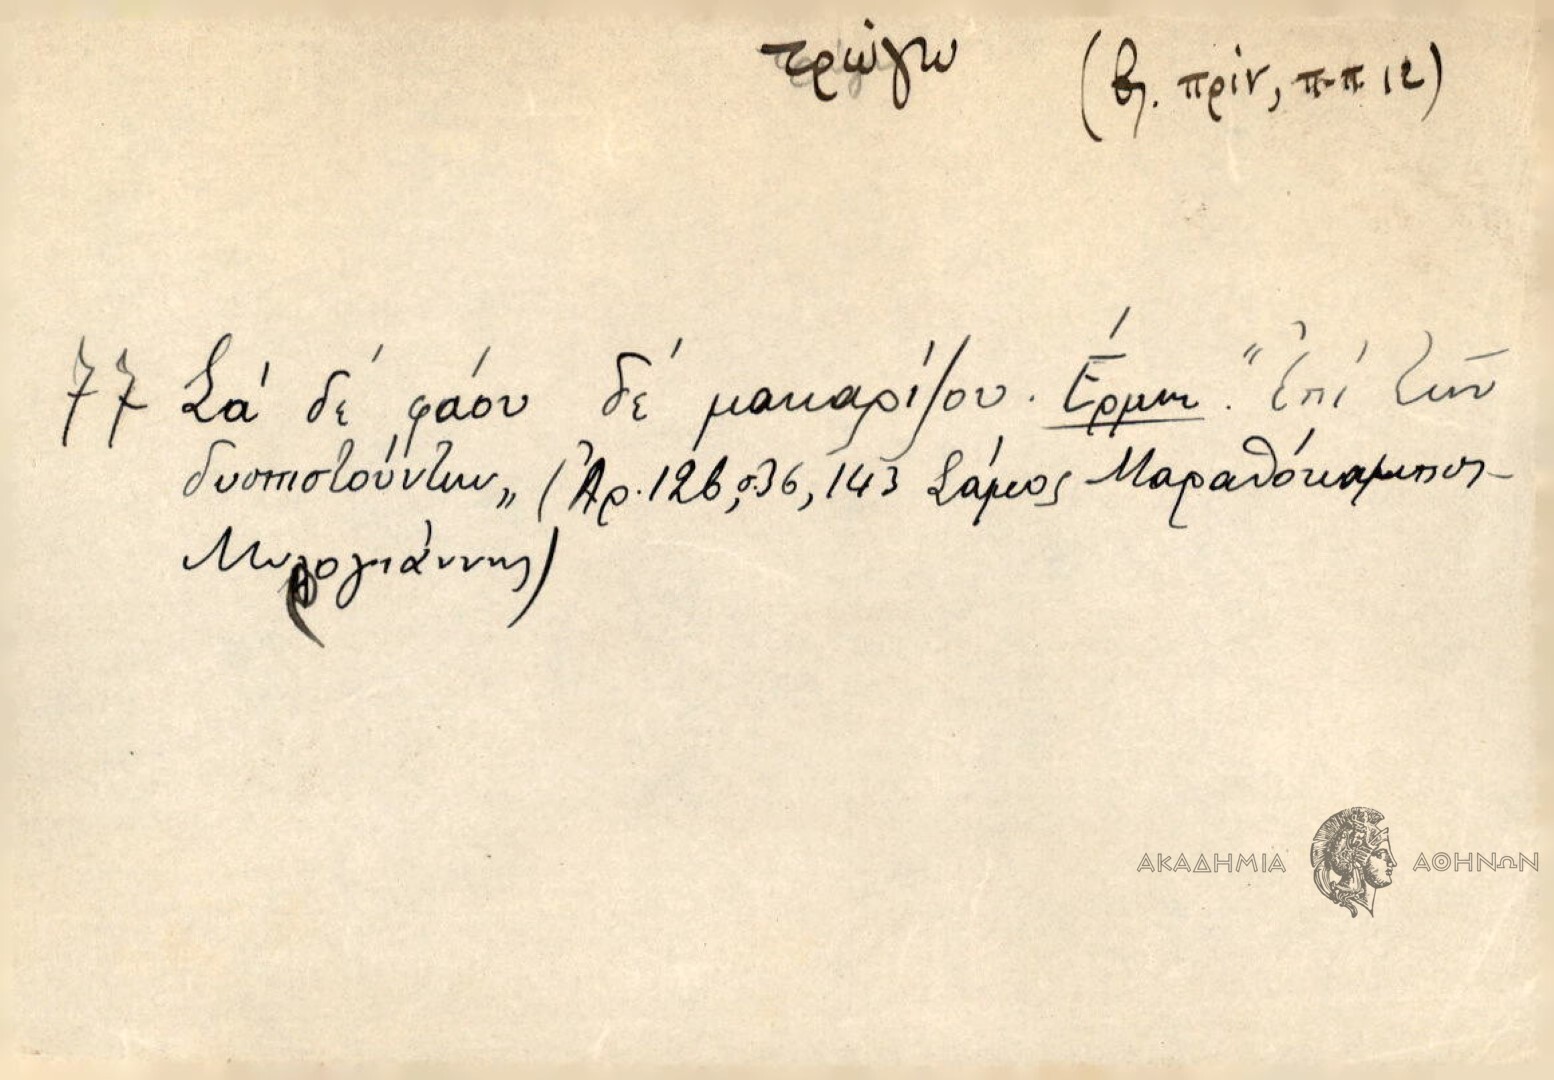 τρώγω (βλ. πρίν, π-π 12)
77 Σά δέ φάου δέ μακαρίζου. Ἑρμην. "Ἐπί τῶν
δυσπιστούντων„ (Ἀρ. 126, σ. 36, 143 Σάμος Μαραθόκαμπος -
Μυλογιάννης)
ΑΚΑΔΗΜΙΑ ΑΘΗΝΩΝ